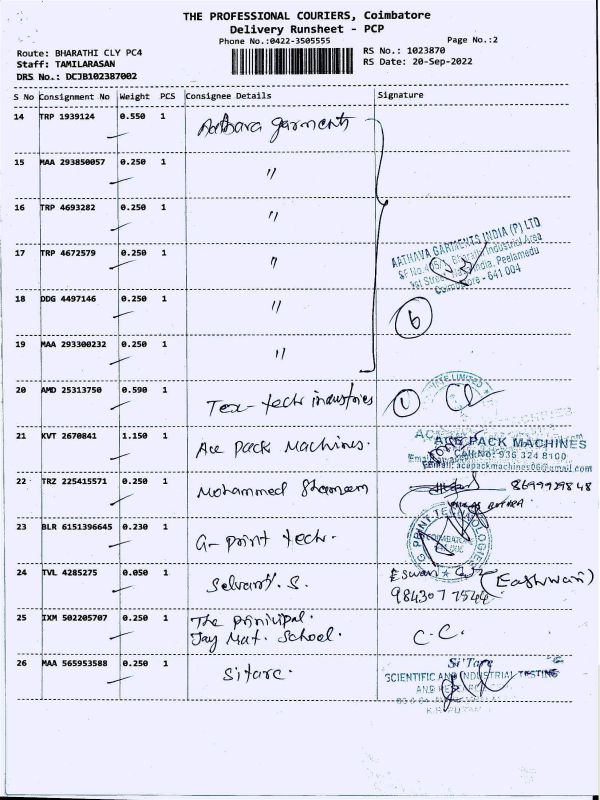 THE PROFESSIONAL COURIERS, Coimbatore
Delivery Runsheet - PCP
Phone No.:0422-3505555 Page No.:2
Route: BHARATHI CLY PC4 RS No.: 1023870
Staff: TAMILARASAN RS Date: 20-Sep-2022
DRS No.: DCJB102387002
S No Consignment No Weight PCS Consignee Details Signature
14 TRP 1939124 0.550 1 Aathava garments
15 MAA 293850057 0.250 1 〃
16 TRP 4693282 0.250 1 〃
17 TRP 4672579 0.250 1 〃
AATHAVA GARMENTS INDIA (P) LTD
Bharathi Industrial Area
Peelamedu
Coimbatore - 641 004
18 DDG 4497146 0.250 1 〃 6
19 MAA 293300232 0.250 1 〃
20 AMD 25313750 0.590 1 Tex-tech industries 1
21 KVT 2670841 1.150 1 Ace Pack Machines.
ACE PACK MACHINES
Call No: 936 324 8100
Email: acepackmachines06@gmail.com
22 TRZ 225415571 0.250 1 Mohammed Shameem
23 BLR 6151396645 0.230 1 G-print tech.
G PRINT TECHNOLOGIES
COIMBATORE
24 TVL 4285275 0.050 1 Selvaraj. S. Eswari (Eashwari)
9843077544
25 IXM 502205707 0.250 1 The prinicipal.
Jay Mat. School. C.C.
26 MAA 565953588 0.250 1 Sitarc.
Si'Tarc
SCIENTIFIC AND INDUSTRIAL TESTING